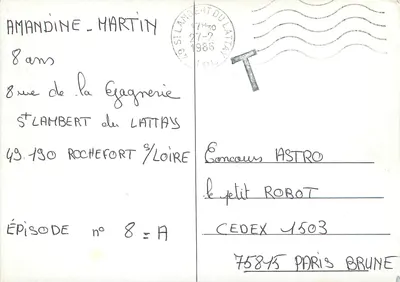 AMANDINE - MARTIN
8 ans
8 rue de la Gagnerie
St LAMBERT du LATTAY
49.190 ROCHEFORT S/LOIRE
ÉPISODE n° 8 = A
49 ST LAMBERT DU LATTAY
27-2
1986
T
Concours ASTRO
le petit ROBOT
CEDEX 1503
75815 PARIS BRUNE